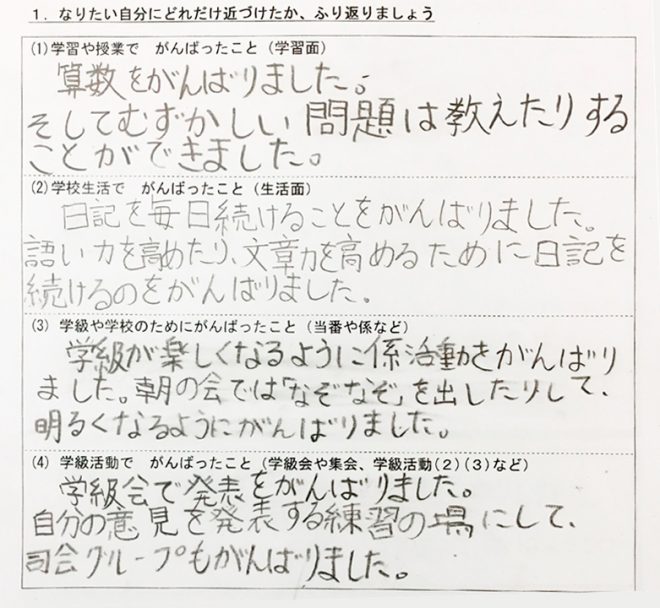 1．なりたい自分にどれだけ近づけたか、ふり返りましょう
(1)学習や授業で　がんばったこと（学習面）
算数をがんばりました。
そしてむずかしい問題は教えたりする
ことができました。
(2)学校生活で　がんばったこと（生活面）
日記を毎日続けることをがんばりました。
語い力を高めたり、文章力を高めるために日記を
続けるのをがんばりました。
(3) 学級や学校のためにがんばったこと（当番や係など）
学級が楽しくなるように係活動をがんばり
ました。朝の会では「なぞなぞ」を出したりして、
明るくなるようにがんばりました。
(4) 学級活動で　がんばったこと（学級会や集会、学級活動(2)(3)など）
学級会で発表をがんばりました。
自分の意見を発表する練習の場にして、
司会グループもがんばりました。